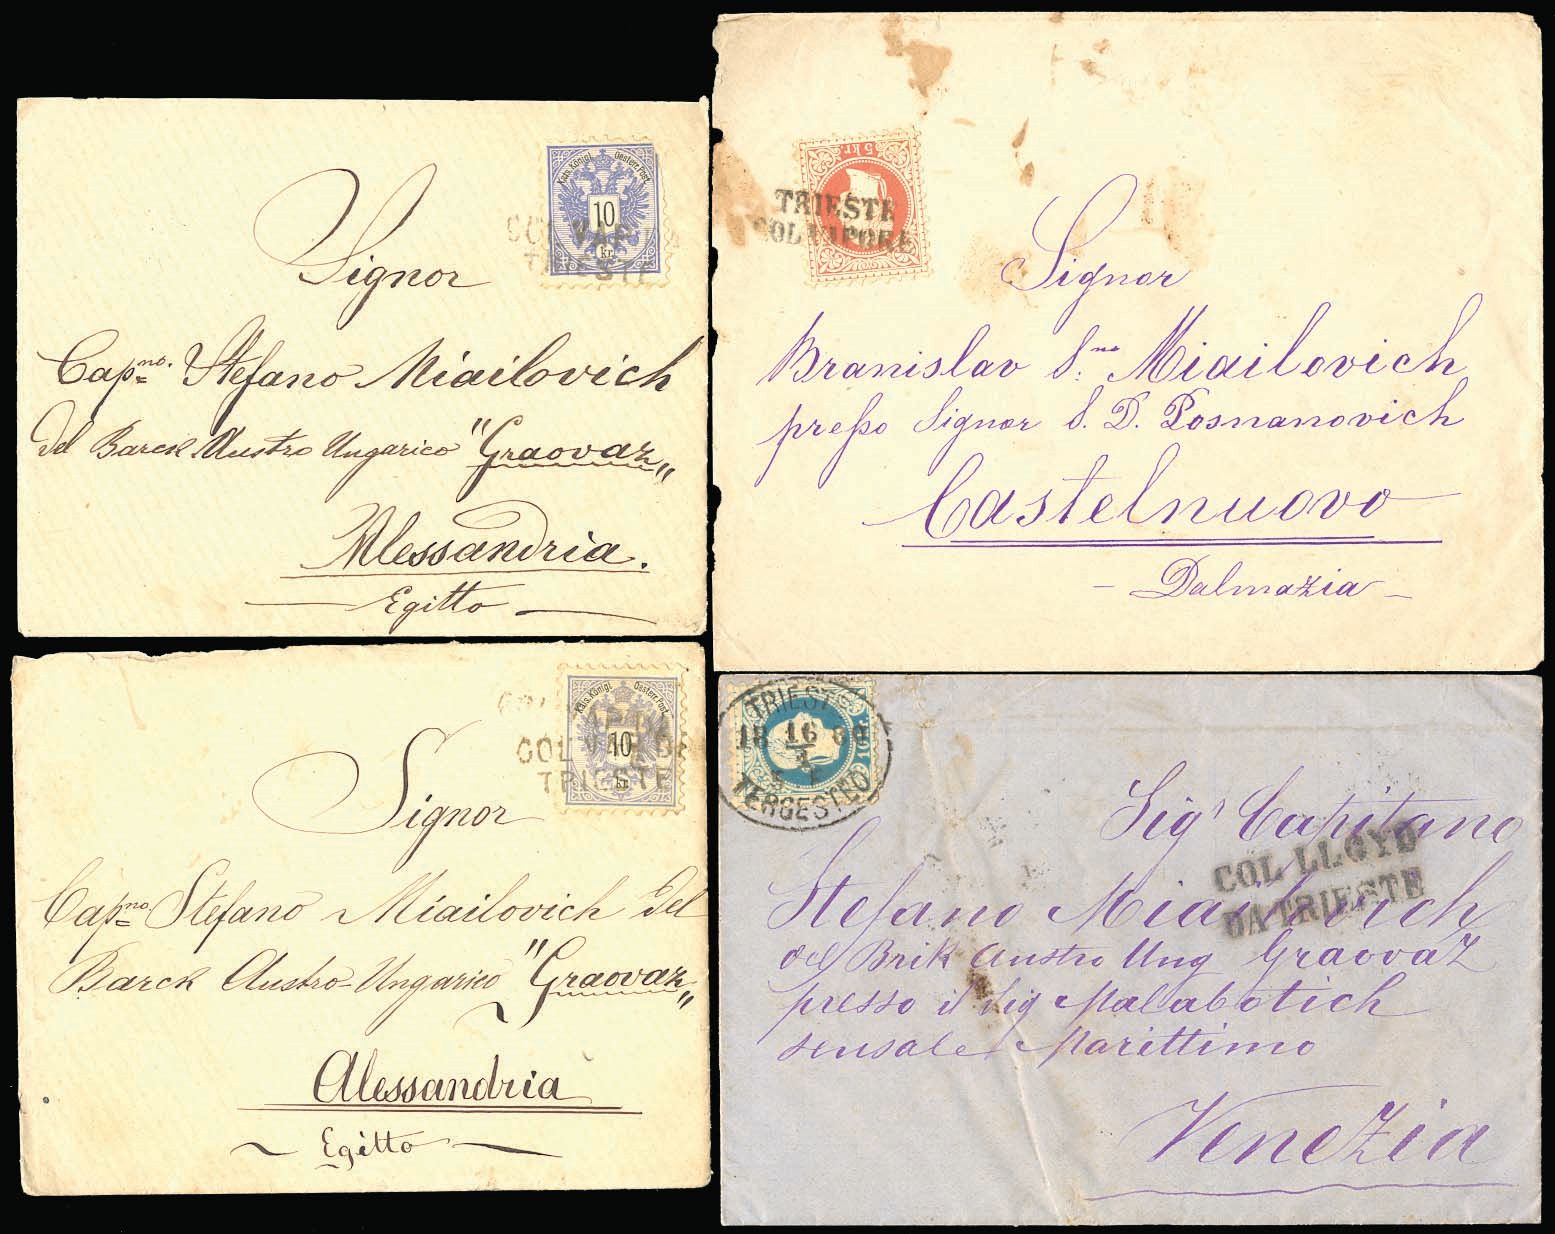 Kais. Königl. Oesterr. Post
10
kr.
COL VAP. DA
TRIESTE
Signor
Capno. Stefano Miailovich
del Barck Austro Ungarico "Graovaz"
Alessandria.
Egitto
5 kr.
TRIESTE
COL VAPORE
Signor
Branislav S.no Miailovich
presso Signor S. D. Posnanovich
Castelnuovo
Dalmazia
Kais. Königl. Oesterr. Post
10
kr.
COL VAP. DA
TRIESTE
Signor
Capno. Stefano Miailovich del
Barck Austro-Ungarico "Graovaz"
Alessandria
Egitto
TRIEST
18 16
TERGESTEO
Sigr Capitano
COL LLOYD
DA TRIESTE
Stefano Miailovich
del Brik Austro Ung Graovaz
presso il Sig Malabotich
sensale Marittimo
Venezia